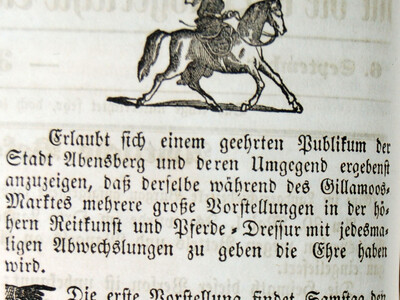 Erlaubt sich einem geehrten Publikum der
Stadt Abensberg und deren Umgegend ergebenst
anzuzeigen, daß derselbe während des Gillamoos-
Marktes mehrere große Vorstellungen in der hö-
hern Reitkunst und Pferde-Dressur mit jedesma-
ligen Abwechslungen zu geben die Ehre haben
wird.
Die erste Vorstellung findet Samstag den